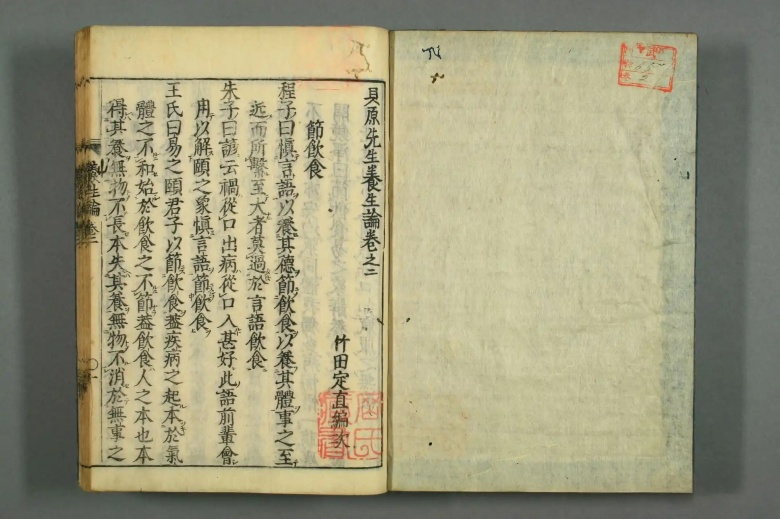 貝原先生養生論卷之二
竹田定直編次
節飲食
程子曰愼言語以養其德節飲食以養其體事之至
近而所繫至大者莫過於言語飲食
朱子曰諺云禍從口出病從口入甚好此語前輩曾
用以解頤之象愼言語節飲食
王氏曰易之頤君子以節飲食蓋疾病之起本於氣
體之不和始於飲食之不節蓋飲食人之本也本
得其養無物不長本失其養無物不消於無事之
養生論 卷二